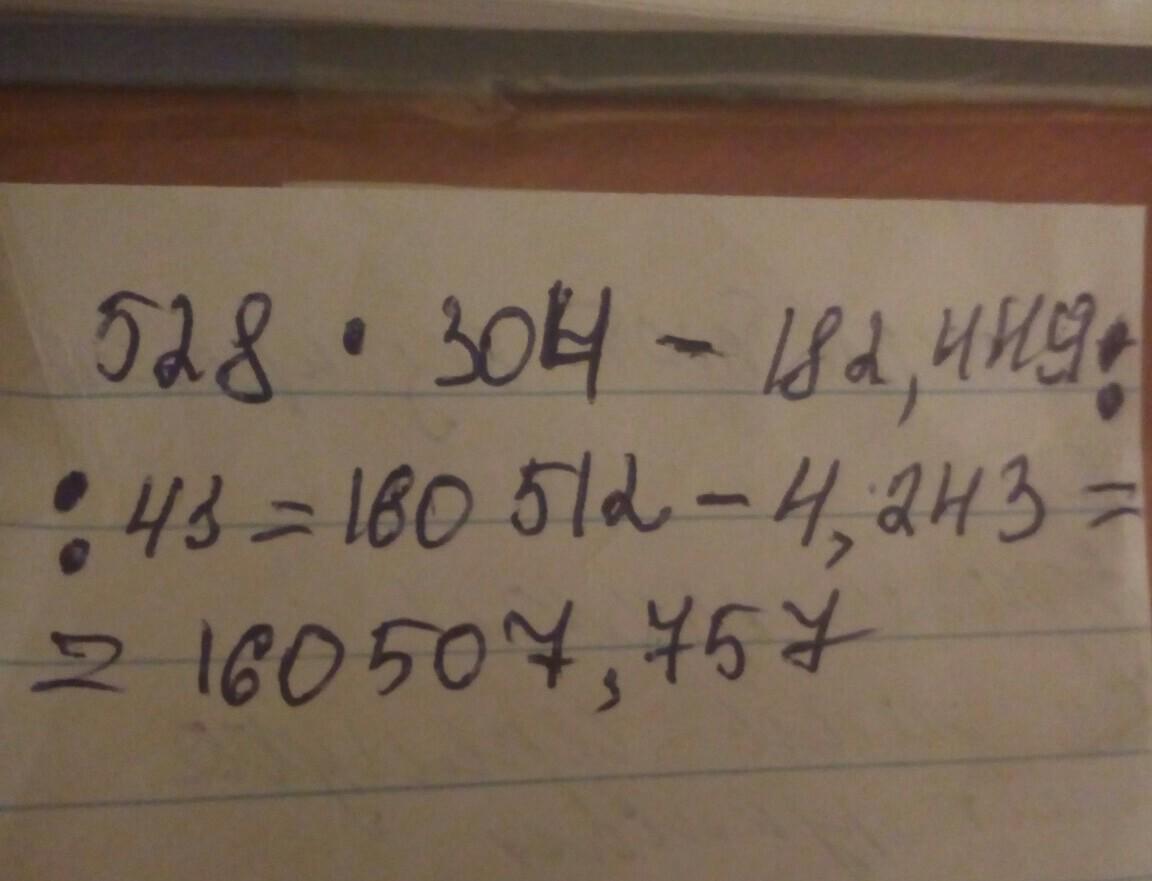 528 · 304 - 182,449:
: 43 = 160 512 - 4,243 =
= 160 507,757